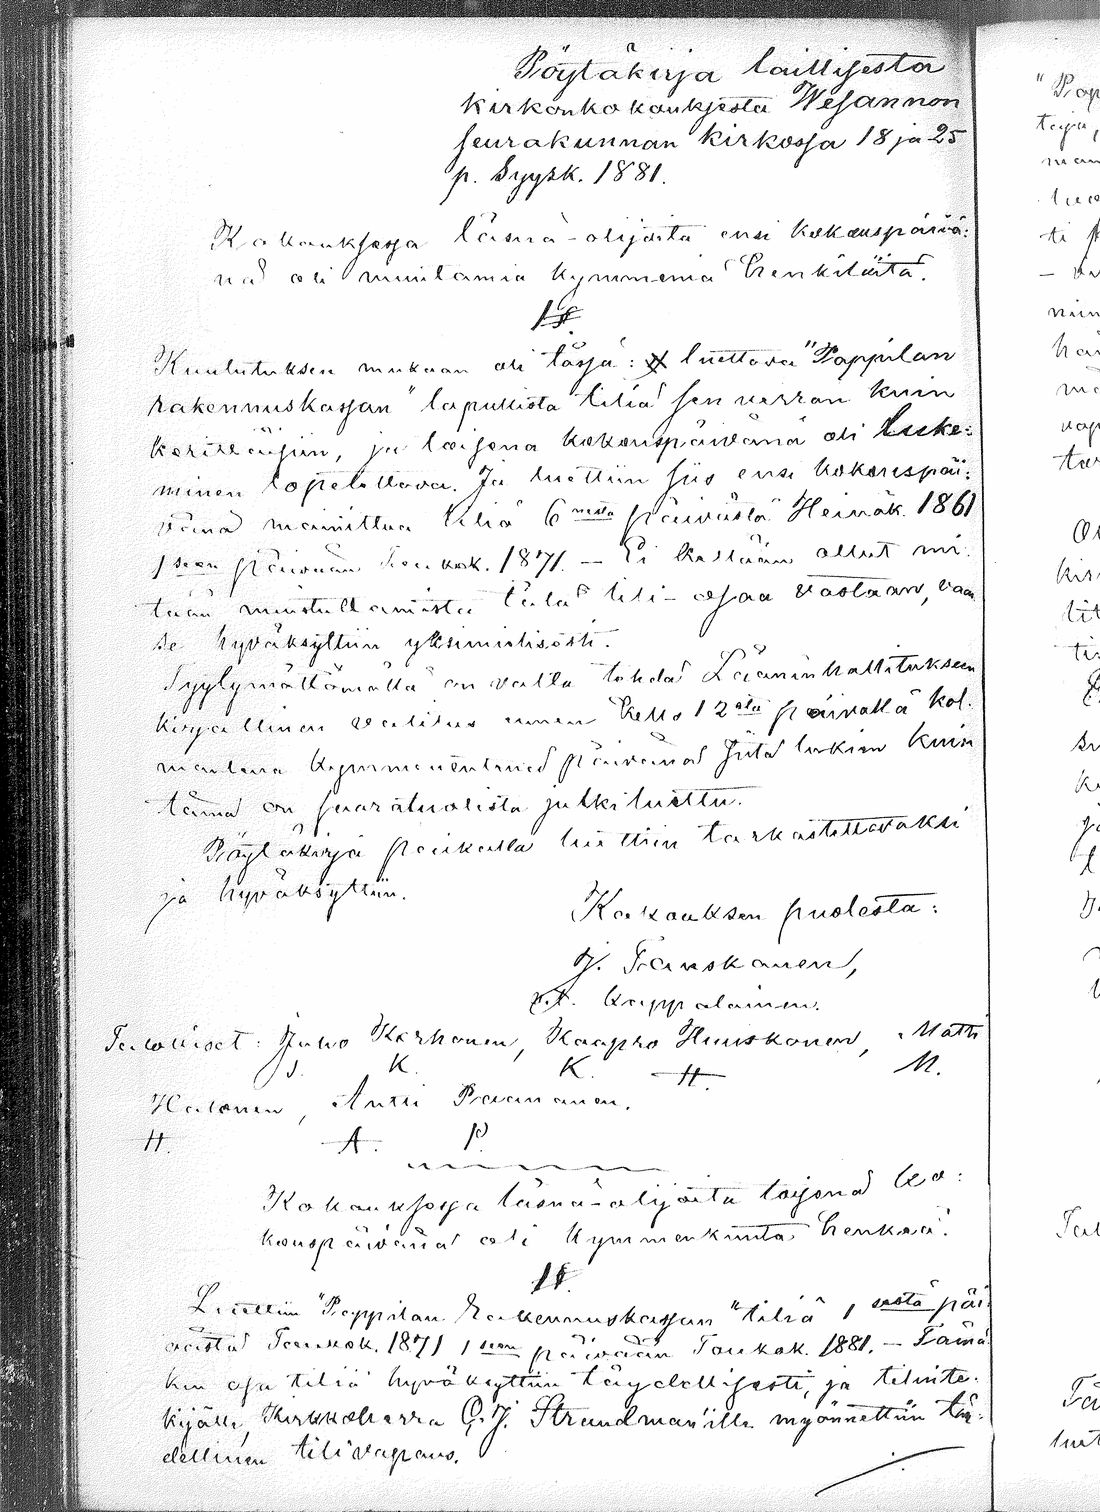 Pöytäkirja laillisesta
kirkonkokouksesta Wesannon
seurakunnan kirkossa 18 ja 25
p. Syysk. 1881.
Kokouksessa läsnä-olijoita ensi kokouspäivä:
nä oli muutamia kymmeniä henkilöitä.
1 §.
Kuulutuksen mukaan oli tässä: luettava "Pappilan
rakennuskassan" lopullista tiliä sen verran kuin
keritläisiin, ja toisena kokouspäivänä oli luke:
minen lopetettava. Ja luettiin siis ensi kokouspäi:
vänä mainittua tiliä 6 nesta päivästä Heinäk. 1861
1 seen päivään Toukok. 1871. — Ei ketään ollut mi:
tään muistuttamista tätä tili-osaa vastaan, vaan
se hyväksyttiin yksimielisesti.
Tyytymättömällä on valta tehdä Lääninhallitukseen
kirjallinen valitus ennen kello 12 sta päivällä kol:
mantena kymmenentenä päivänä siitä lukien kuin
tämä on saarnatuolista julki luettu.
Pöytäkirja paikalla luettiin tarkastettavaksi
ja hyväksyttiin.
Kokouksen puolesta:
J. Tanskanen,
v.t. kappalainen.
Talolliset: Juho Korhonen, Kaapro Huuskonen, Matti
J. K. K. H. M.
Halonen, Antti Paananen.
H. A. P.
Kokouksessa läsnä-olijoita toisena ko:
kouspäivänä oli kymmenkunta henkeä.
1 §.
Luettiin "Pappilan Rakennuskassan" tiliä 1 sestä päi:
västä Toukok. 1871 1 seen päivään Toukok. 1881. — Tämä:
kin osa tiliä hyväksyttiin täydellisesti, ja tilinte:
kijälle, Kirkkoherra C. J. Strandman'ille myönnettiin täy:
dellinen tilivapaus.